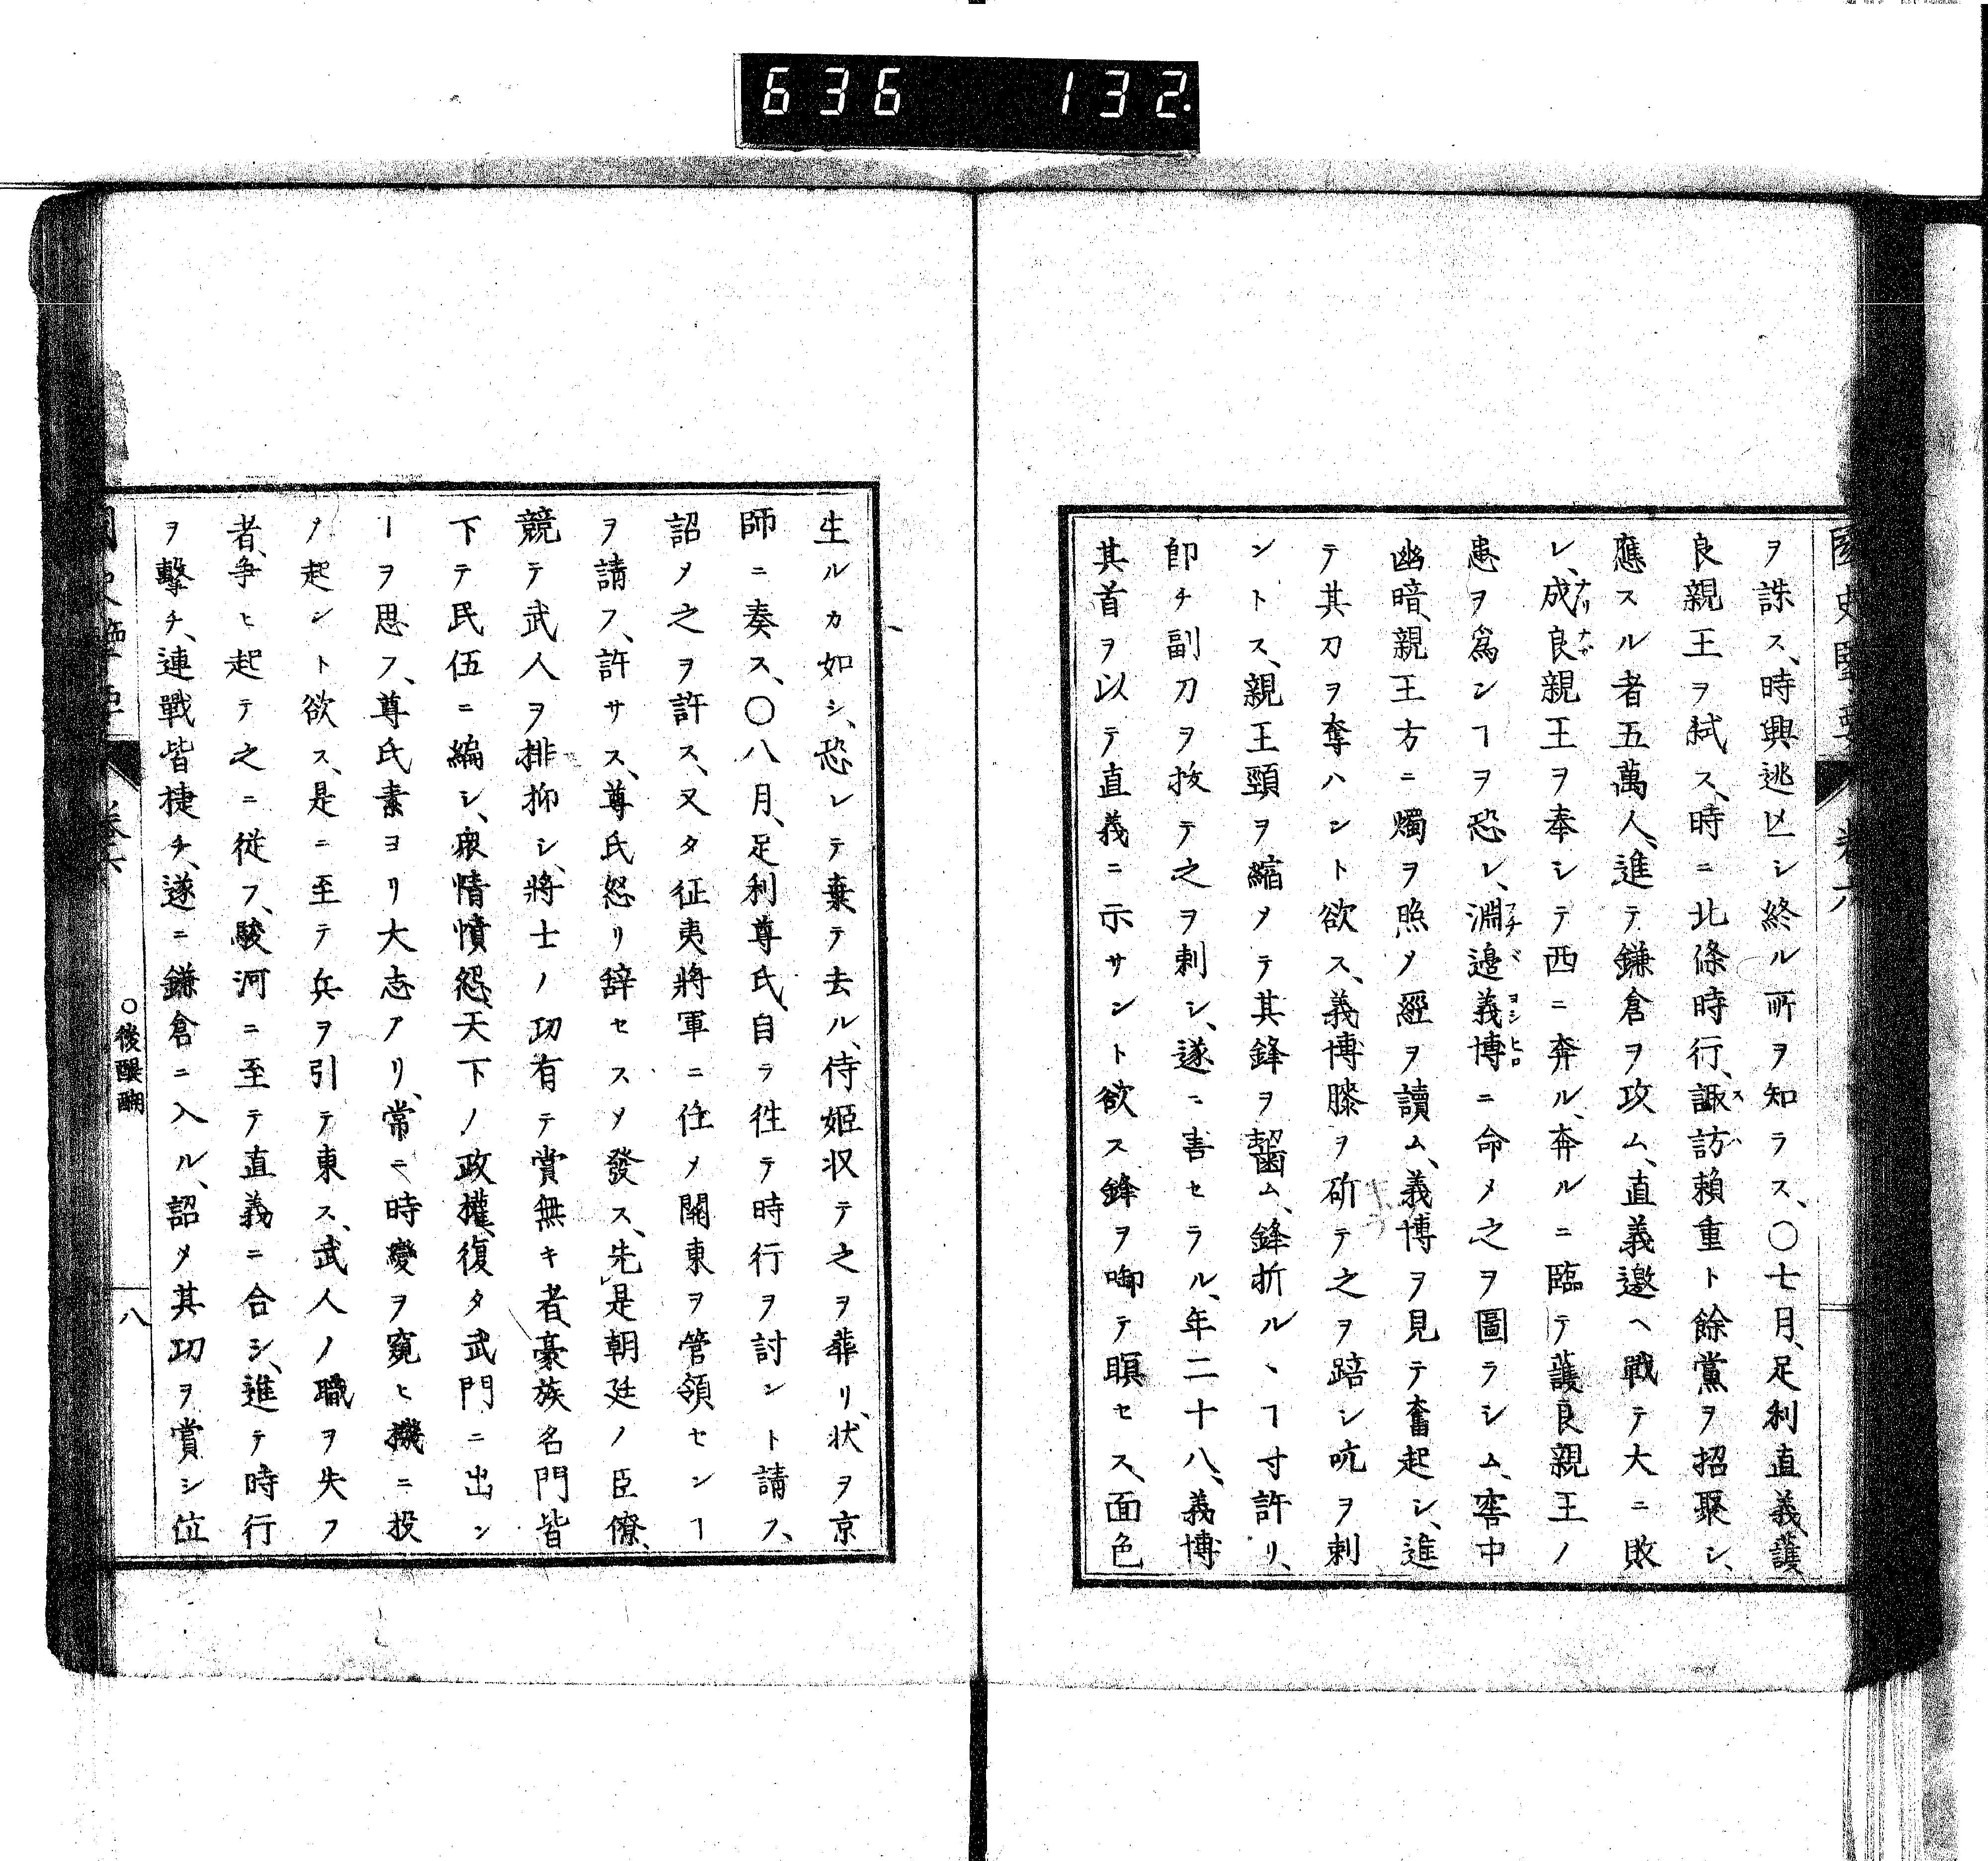 636 132
ヲ誅ス、時興逃亾シ終ル所ヲ知ラス、〇七月、足利直義、護
良親王ヲ弑ス、時ニ北條時行、諏訪頼重ト餘黨ヲ招聚シ、
應スル者五萬人、進テ鎌倉ヲ攻ム、直義邀ヘ戰テ大ニ敗
レ、成良親王ヲ奉シテ西ニ奔ル、奔ルニ臨テ護良親王ノ
患ヲ爲ンヿヲ恐レ、淵邉義博ニ命メ之ヲ圖ラシム、窖中
幽暗、親王方ニ燭ヲ照メ經ヲ讀ム、義博ヲ見テ奮起シ、進
テ其刀ヲ奪ハント欲ス、義博膝ヲ斫テ之ヲ踣シ吭ヲ刺
ントス、親王頸ヲ縮メテ其鋒ヲ齧ム、鋒折ルヽヿ寸許リ、
卽チ副刀ヲ拔テ之ヲ刺シ、遂ニ害セラル、年二十八、義博
其首ヲ以テ直義ニ示サント欲ス鋒ヲ啣テ瞑セス、面色
生ルカ如シ、恐レテ棄テ去ル、侍姫収テ之ヲ葬リ、状ヲ京
師ニ奏ス、〇八月、足利尊氏、自ラ徃テ時行ヲ討ント請フ、
詔メ之ヲ許ス、又タ征夷將軍ニ任メ關東ヲ管領センヿ
ヲ請フ、許サス、尊氏怒リ辞セスメ發ス、先是朝廷ノ臣僚、
競テ武人ヲ排抑シ、將士ノ功有テ賞無キ者、豪族名門皆
下テ民伍ニ編シ、衆情憤怨、天下ノ政權、復タ武門ニ出ン
ヿヲ思フ、尊氏素ヨリ大志アリ、常ニ時變ヲ窺ヒ機ニ投
ノ起ント欲ス、是ニ至テ兵ヲ引テ東ス、武人ノ職ヲ失フ
者、争ヒ起テ之ニ從フ、駿河ニ至テ直義ニ合シ、進テ時行
ヲ擊チ、連戰皆捷チ、遂ニ鎌倉ニ入ル、詔メ其功ヲ賞シ位
〇後醍醐
八